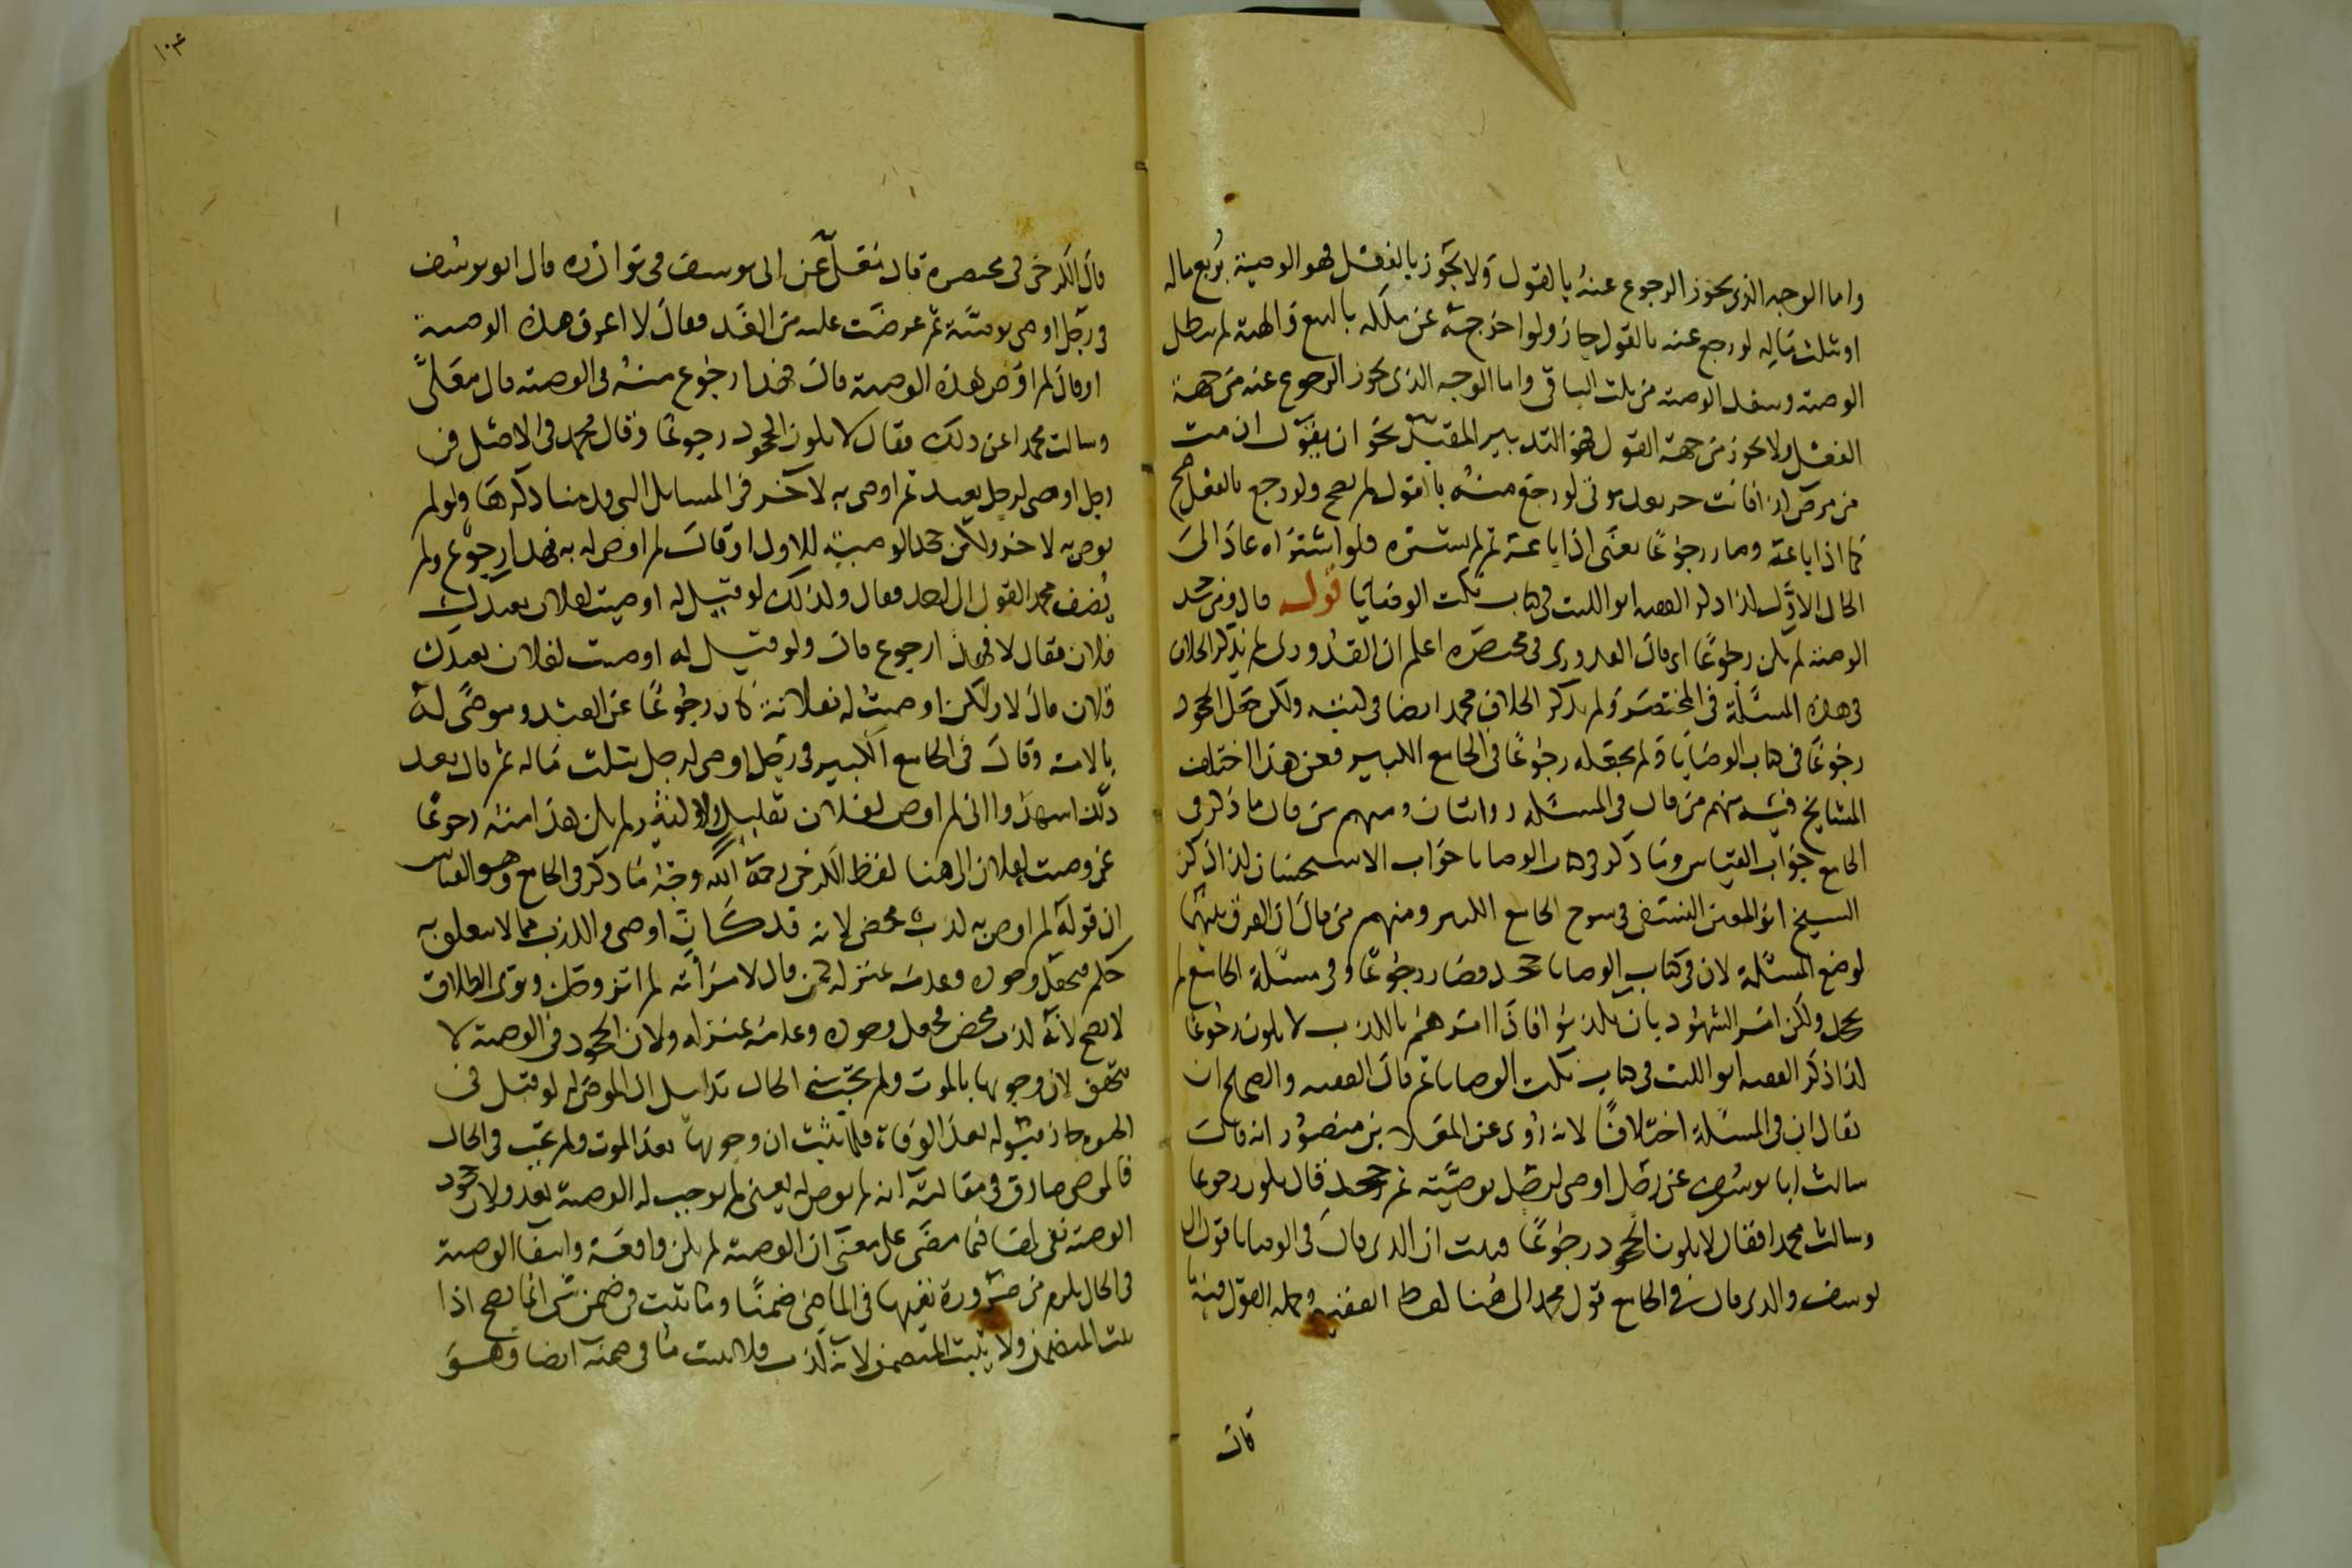 واما الوجه الذى يجوز الرجوع عنه بالقول ولا يجوز بالفعل فهو الوصية بربع ماله
او بثلث ماله لو رجع عنه بالقول جاز ولو اخرجه عن ملكه بالبيع والهبة لم يبطل
الوصية وينفذ الوصية من ثلث الباقى واما الوجه الذى يجوز الرجوع عنه من جهة
الفعل ولا يجوز من جهة القول فهو التدبير المقيد نحو ان يقول ان مت
من مرض كذا فانت حر بعد موتى لو رجع منه بالقول لم يصح ولو رجع بالفعل صح
كما اذا باعه وصار رجوعا يعنى اذا باعه ثم لم يشتره ولو اشتراه عاد الى
الحال الاول كذا ذكر الفقيه ابو الليث فى كتاب نكت الوصايا قوله قال ومن جحد
الوصية لم يكن رجوعا اى قال القدورى فى مختصره اعلم ان القدورى لم يذكر الخلاف
فى هذه المسئلة فى المختصر ولم يذكر الخلاف محمد ايضا فى كتبه ولكن جعل الجحود
رجوعا فى كتاب الوصايا ولم يجعله رجوعا فى الجامع الكبير فعن هذا اختلف
المشايخ فيه منهم من قال فى المسئلة روايتان ومنهم من قال ما ذكر فى
الجامع جواب القياس وما ذكر فى كتاب الوصايا جواب الاستحسان كذا ذكر
الشيخ ابو المعين النسفى فى شرح الجامع الكبير ومنهم من قال ان الفرق بينهما
لوضع المسئلة لان فى كتاب الوصايا جحد فصار رجوعا وفى مسئلة الجامع لم
يجحد ولكن امر الشهود بان يكذبوا فاذا امرهم بالكذب لا يكون رجوعا
كذا ذكر الفقيه ابو الليث فى كتاب نكت الوصايا ثم قال الفقيه والصحيح ان
يقال ان فى المسئلة اختلافا لانه روى عن المعلا بن منصور انه قال
سالت ابا يوسف عن رجل اوصى لرجل بوصية ثم جحد قال يكون رجوعا
وسالت محمدا فقال لا يكون الجحود رجوعا فثبت ان الذى قال فى الوصايا قول ابى
يوسف والذى قال فى الجامع قول محمد الى هنا لفظ الفقيه وجملة القول فيه ما
قال
١٠٤
قال الكرخى فى مختصره قال نقل عن ابى يوسف فى نوادره قال ابو يوسف
فى رجل اوصى بوصية ثم عرضت عليه من الغد فقال لا اعرف هذه الوصية
او قال لم اوص بهذه الوصية قال فهذا رجوع منه فى الوصية قال معلى
وسالت محمدا عن ذلك فقال لا يكون الجحود رجوعا وقال محمد فى الاصل فى
رجل اوصى لرجل بعبد ثم اوصى به لاخر فى المسايل التى قدمنا ذكرها ولو لم
يوص به لاخر ولكن جحد الوصية للاول او قال لم اوص له به فهذا رجوع ولم
يضف محمد القول الى احد فقال وكذلك لو قيل له اوصيت لفلان بعبدك
فلان فقال لا فهذا رجوع قال ولو قيل له اوصيت لفلان بعبدك
فلان قال لا ولكن اوصيت له بفلانة كان رجوعا عن العبد وموصى له
بالامة وقال فى الجامع الكبير فى رجل اوصى لرجل بثلث ماله ثم قال بعد
ذلك اشهدوا انى لم اوص لفلان بقليل ولا كثير لم يكن هذا منه رجوعا
عن وصيته لفلان الى هنا لفظ الكرخى رحمه الله وجه ما ذكر فى الجامع وهو القياس
ان قوله لم اوص به كذب محض لانه قد كان اوصى والكذب مما لا يتعلق به
حكم فجعل وجوده وعدمه بمنزلة كمن قال لامرأته لم اتزوجك ونوى الطلاق
لا يصح لانه كذب محض فجعل وجوده وعدمه بمنزلة ولان الجحود فى الوصية لا
يتحقق لان وجوبها بالموت ولم يجب شى الحال بدليل ان الموصى له لو قبل فى
الحيوة جاز قبوله بعد الوفاة فلما ثبت ان وجوبها بعد الموت ولم يجب فى الحال
فالموصى صادق فى مقالته انه لم يوص له يعنى لم يوجب له الوصية بعد ولان جحود
الوصية نفى لها فيما مضى على معنى ان الوصية لم يكن واقعة وانتفا الوصية
فى الحال يلزم من ضرورة نفيها فى الماضى ضمنا وما ثبت فى ضمن شى انما يصح اذا
ثبت المتضمن ولا يثبت المتضمن لانه كذب فلا يثبت ما فى ضمنه ايضا وهو